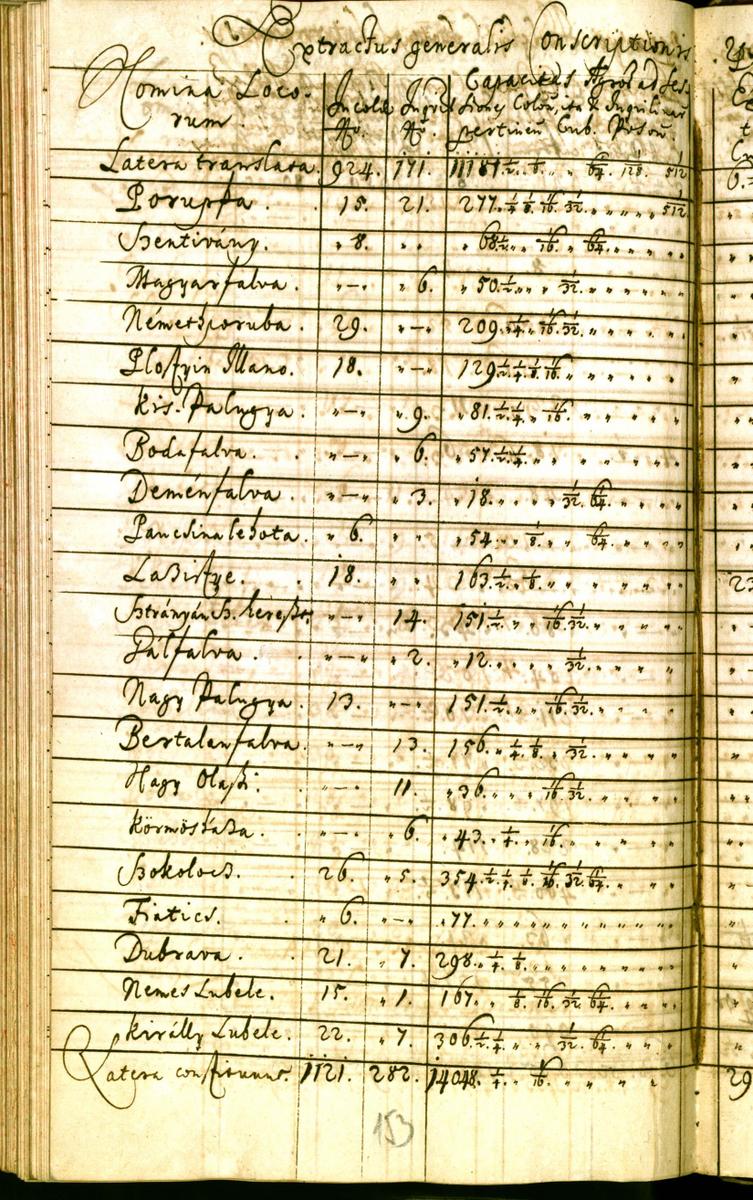 Extractus generalis Conscriptionis
Nomina Loco- Incolæ Inquil Capacitas Agror ad Ses-
rum. Nro. Nro. siones Colon, ita & Inquilinar
pertinen Cub. Poson.
Latera translata. 924. 171. 11181. 1/2. „ 1/8. „ „ 1/64. 1/128. „ 1/512
Porupka. 15. 21. 277. 1/2 1/4 1/8. 1/16. 1/32. „ „ „ „ 1/512
Szentivány. „ 8. „ „ „ 68 1/2. „ „ 1/16. „ 1/64. „ „ „
Magyarfalva. „—„ „ 6. „ 50. 1/2. „ „ „ 1/32. „ „ „ „
Némethporuba. 29. „—„ 209. „ 1/4. „ 1/16. 1/32. „ „ „ „
Plosztin Illano. 18. „—„ 129. 1/2. 1/4. 1/8. 1/16. „ „ „ „ „
Kis-Palugya. „—„ „ 9. „ 81. 1/2. 1/4. „ 1/16. „ „ „ „ „
Bodafalva. „—„ „ 6. „ 57. 1/2. 1/4. „ „ „ „ „ „ „
Deménfalva. „—„ „ 3. „ 18. „ „ „ „ 1/32. 1/64. „ „ „
Pauczinalehota. „ 6. „ „ „ 54. „ „ 1/8. „ „ 1/64. „ „ „
Lazisztye. 18. „ „ 163. 1/2. „ 1/8. „ „ „ „ „ „
Sztrányán „—„ 14. 151. 1/2. „ „ 1/16. 1/32. „ „ „ „
Pálfalva. „—„ „ 2. „ 12. „ „ „ „ 1/32. „ „ „ „
Nagy Palugya. 13. „—„ 151. 1/2. „ „ 1/16. 1/32. „ „ „ „
Bertalanfalva. „—„ 13. 156. „ 1/4. 1/8. „ 1/32. „ „ „ „
Nagy Olaszi. „—„ 11. „ 36. „ „ „ 1/16. 1/32. „ „ „ „
Körmösháza. „—„ „ 6. „ 43. „ 1/4. „ 1/16. „ „ „ „ „
Szokolocz. 26. „ 5. 354. 1/2. 1/4. 1/8. 1/16. 1/32. 1/64. „ „ „
Fiatics. „ 6. „—„ „ 77. „ „ „ „ „ „ „ „ „
Dubrava. 21. „ 7. 298. „ 1/4. 1/8. „ „ „ „ „ „
Nemes Lubele. 15. „ 1. 167. „ „ 1/8. 1/16. 1/32. 1/64. „ „ „
Király Lubele. 22. „ 7. 306. 1/2. 1/4. „ „ 1/32. 1/64. „ „ „
Latera constituunt. 1121. 282. 14048. „ 1/4. „ 1/16. „ „ „ „ „
153